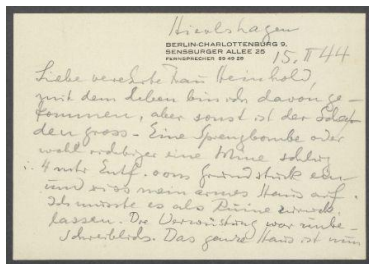 Hierlshagen
BERLIN-CHARLOTTENBURG 9,
SENSBURGER ALLEE 25
FERNSPRECHER 99 49 25
15. II 44
Liebe verehrte Frau Reinhold,
mit dem Leben bin ich davon ge-
kommen, aber sonst ist der Scha-
den gross - Eine Sprengbombe oder
wohl richtiger eine Mine schlug
4 mtr Entf. vom Grundstück ein
und riss mein armes Haus auf.
Ich musste es als Ruine zurück
lassen. Die Verwüstung war unbe-
schreiblich. Das ganze Haus ist nun